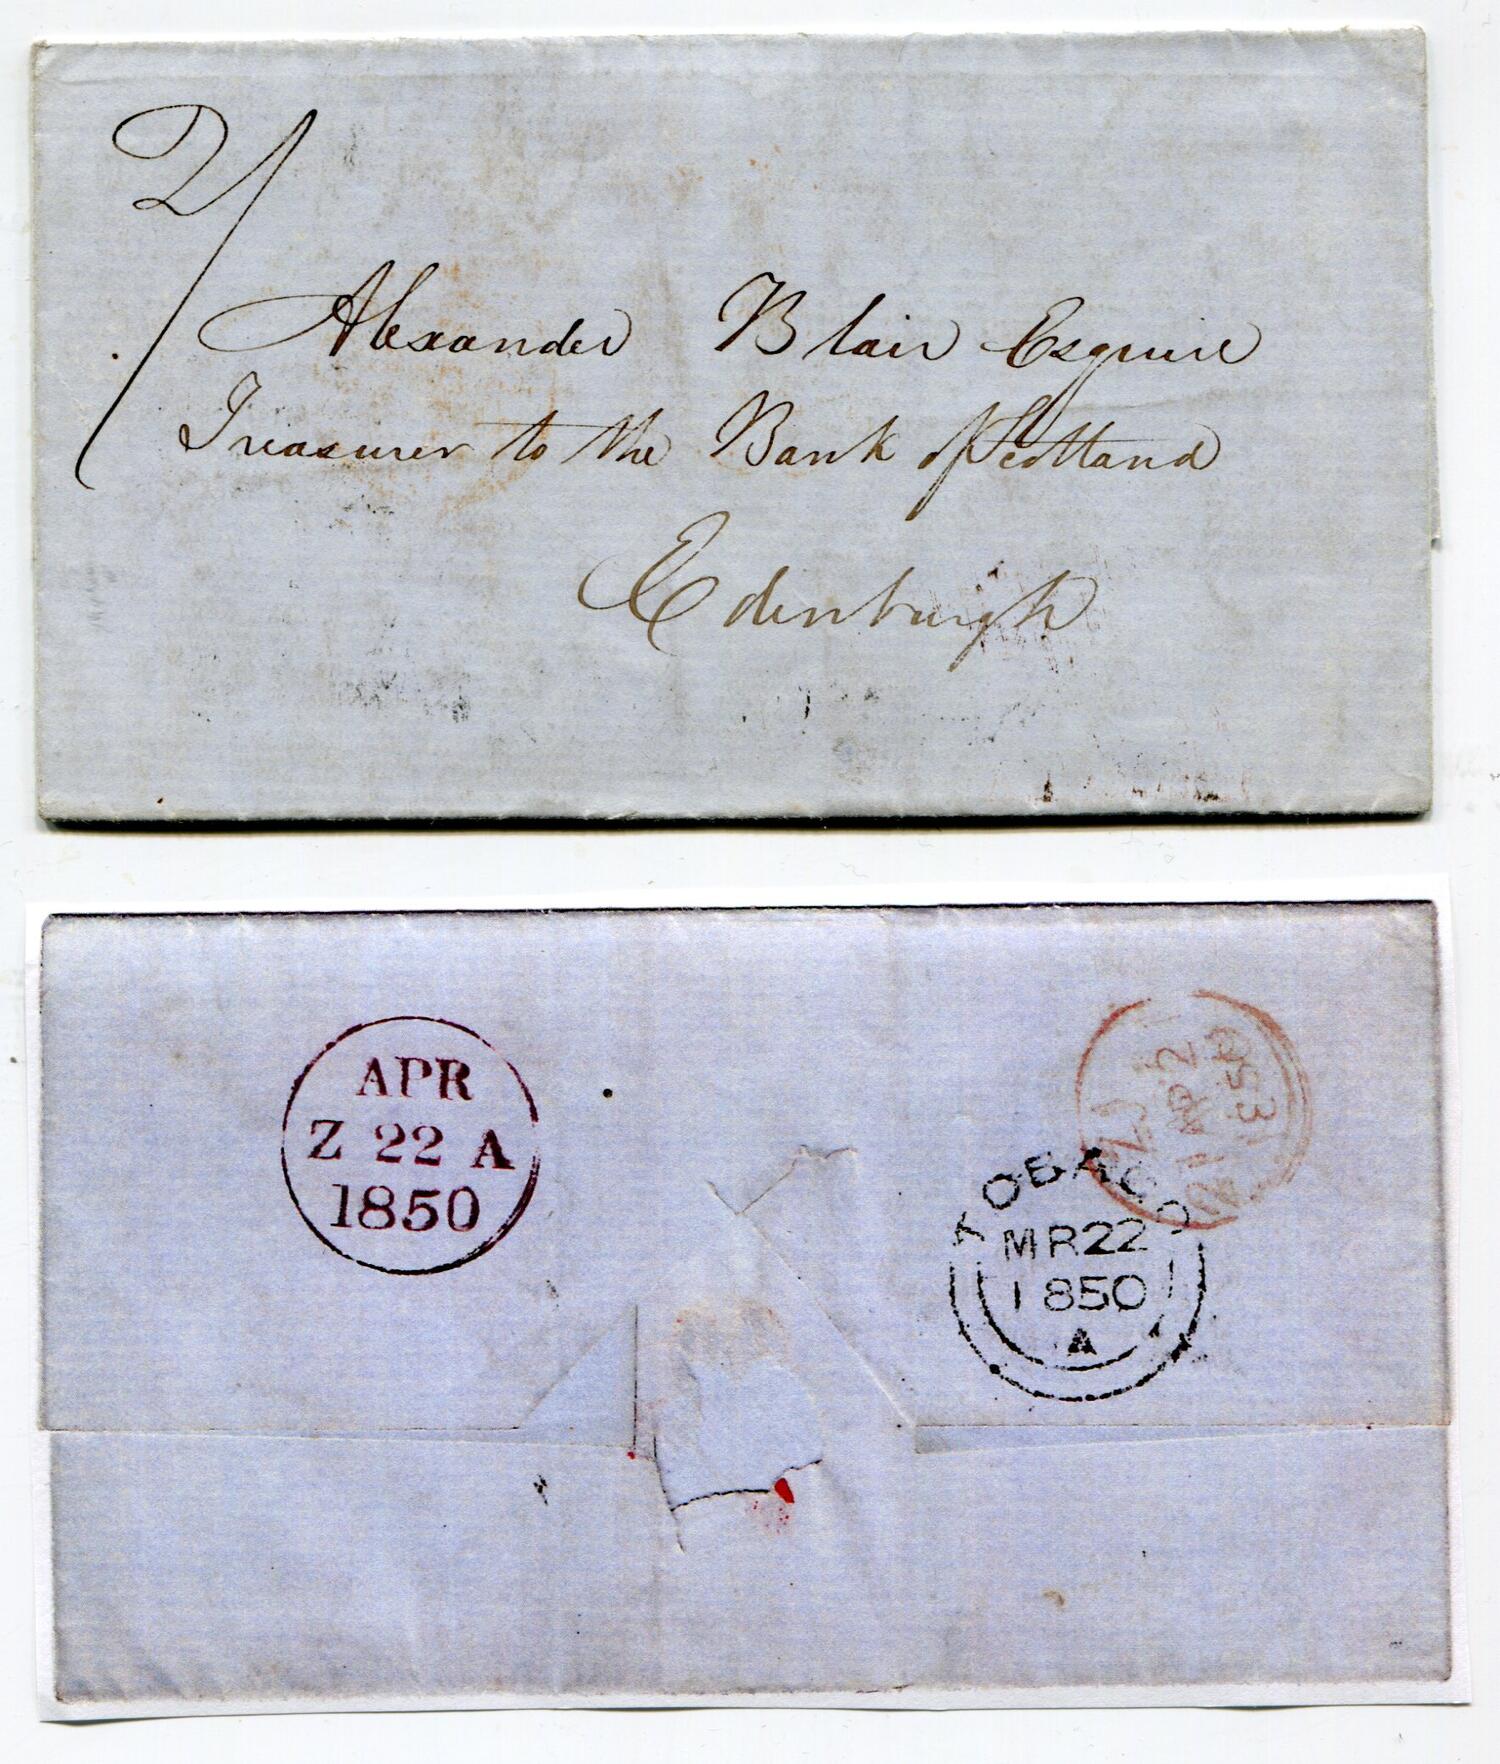 2/
Alexander Blair Esquire
Treasurer to the Bank of Scotland
Edinburgh
APR
Z 22 A
1850
ZJ
21 AP 21
1850
TOBAGO
MR 22
1850
A